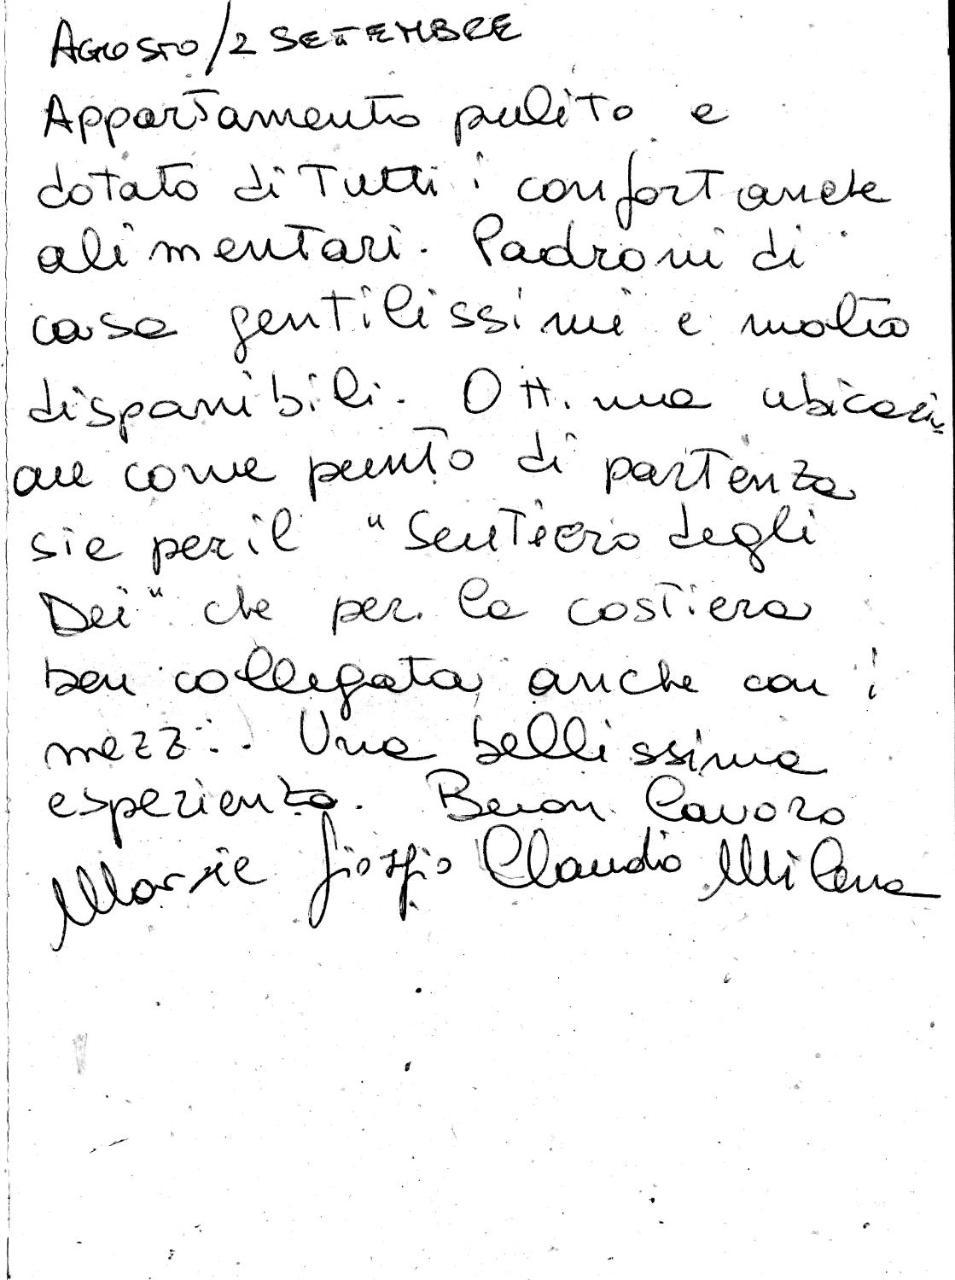 AGOSTO/2 SETTEMBRE
Appartamento pulito e
dotato di Tutti i confort anche
alimentari. Padroni di
casa gentilissimi e molto
disponibili. Ottima ubicazi
one come punto di partenza
sia per il "Sentiero degli
Dei" che per la costiera
ben collegata anche con i
mezzi. Una bellissima
esperienza. Buon lavoro
Maria Giorgio Claudio Milena